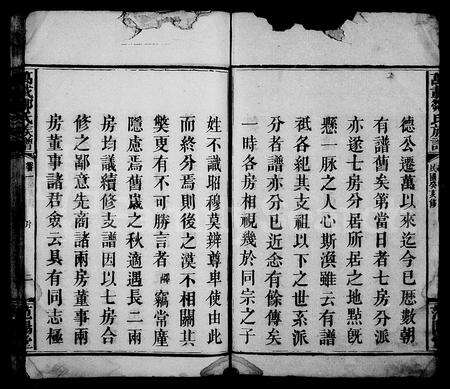 德公遷萬以來迄今已歷數朝
有譜舊矣第當日者七房分派
亦遂七房分居所居之地點旣
懸一脉之人心斯渙雖云有譜
祇各紀其支祖以下之世系派
分者譜亦分已近悆有餘傳矣
一時各房相視幾於同宗之子
姓不識昭穆莫辨尊卑使由此
而終分焉則後之漠不相關其
獘更有不可勝言者 竊常塵
隱慮焉舊歲之秋適遇長二兩
房均議續修支譜因以七房合
修之鄙意先商諸兩房董事兩
房董事諸君僉云具有同志極